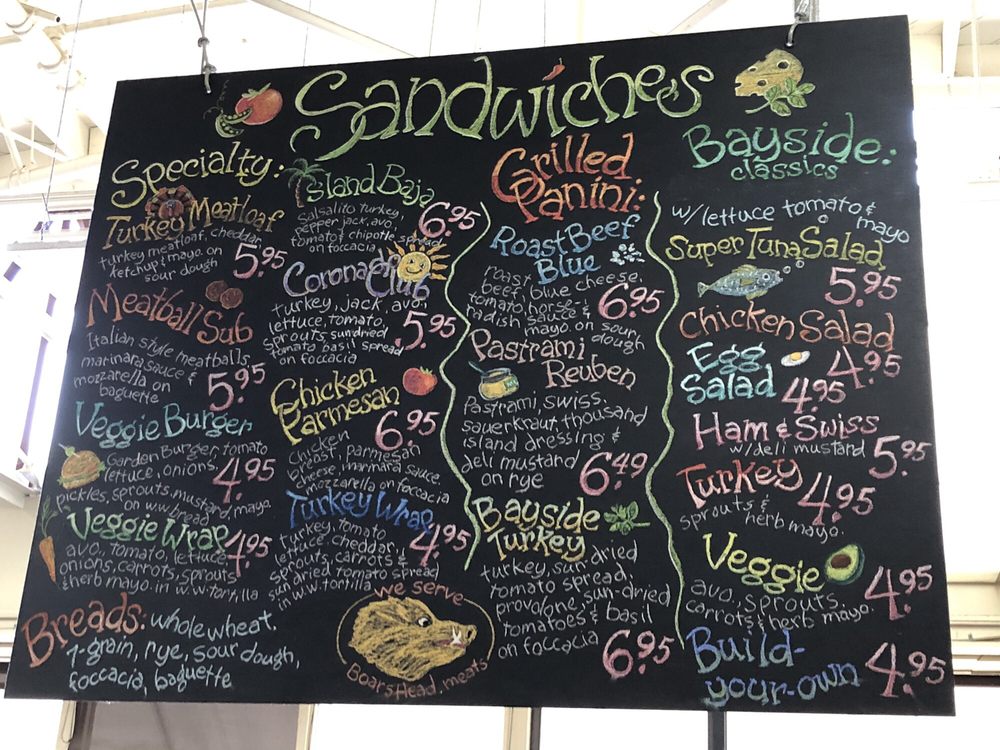 Sandwiches
Specialty:
Turkey Meatloaf
turkey meatloaf, cheddar,
ketchup & mayo. on
sour dough
5.95
Meatball Sub
Italian style meatballs
marinara sauce &
mozzarella on
baguette
5.95
Veggie Burger
Garden Burger, tomato
lettuce, onions
pickles, sprouts, mustard, mayo.
on w.w bread
4.95
Veggie Wrap
avo., tomato, lettuce,
onions, carrots, sprouts
& herb mayo. in w.w. tortilla
4.95
Island Baja
Salsalito turkey,
pepper jack, avo,
tomato & chipotle spread
on foccacia
6.95
Coronado Club
turkey, jack, avo,
lettuce, tomato
sprouts, sundried
tomato basil spread
on foccacia
5.95
Chicken
Parmesan
6.95
Chicken
breast, parmesan
cheese, marinara sauce,
mozzarella on foccacia
Turkey Wrap
turkey, tomato
lettuce, cheddar,
sprouts, carrots &
sun dried tomato spread
in w.w. tortilla
4.95
Breads: whole wheat,
7-grain, rye, sour dough,
foccacia, baguette
we serve
Boar's Head meats
Grilled
Panini:
Roast Beef
Blue
roast
beef, blue cheese,
tomato, horse-
radish sauce &
mayo. on sour
dough
6.95
Pastrami
Reuben
Pastrami, swiss,
sauerkraut, thousand
island dressing &
deli mustard
on rye
6.49
Bayside
Turkey
turkey, sun-dried
tomato spread,
provolone, sun-dried
tomatoes & basil
on foccacia
6.95
Bayside:
classics
w/lettuce tomato &
mayo
Super Tuna Salad
5.95
Chicken Salad
4.95
Egg
Salad
4.95
Ham & Swiss
w/deli mustard
5.95
Turkey
sprouts &
herb mayo.
4.95
Veggie
avo., sprouts,
carrots & herb mayo.
4.95
Build-
your-own
4.95